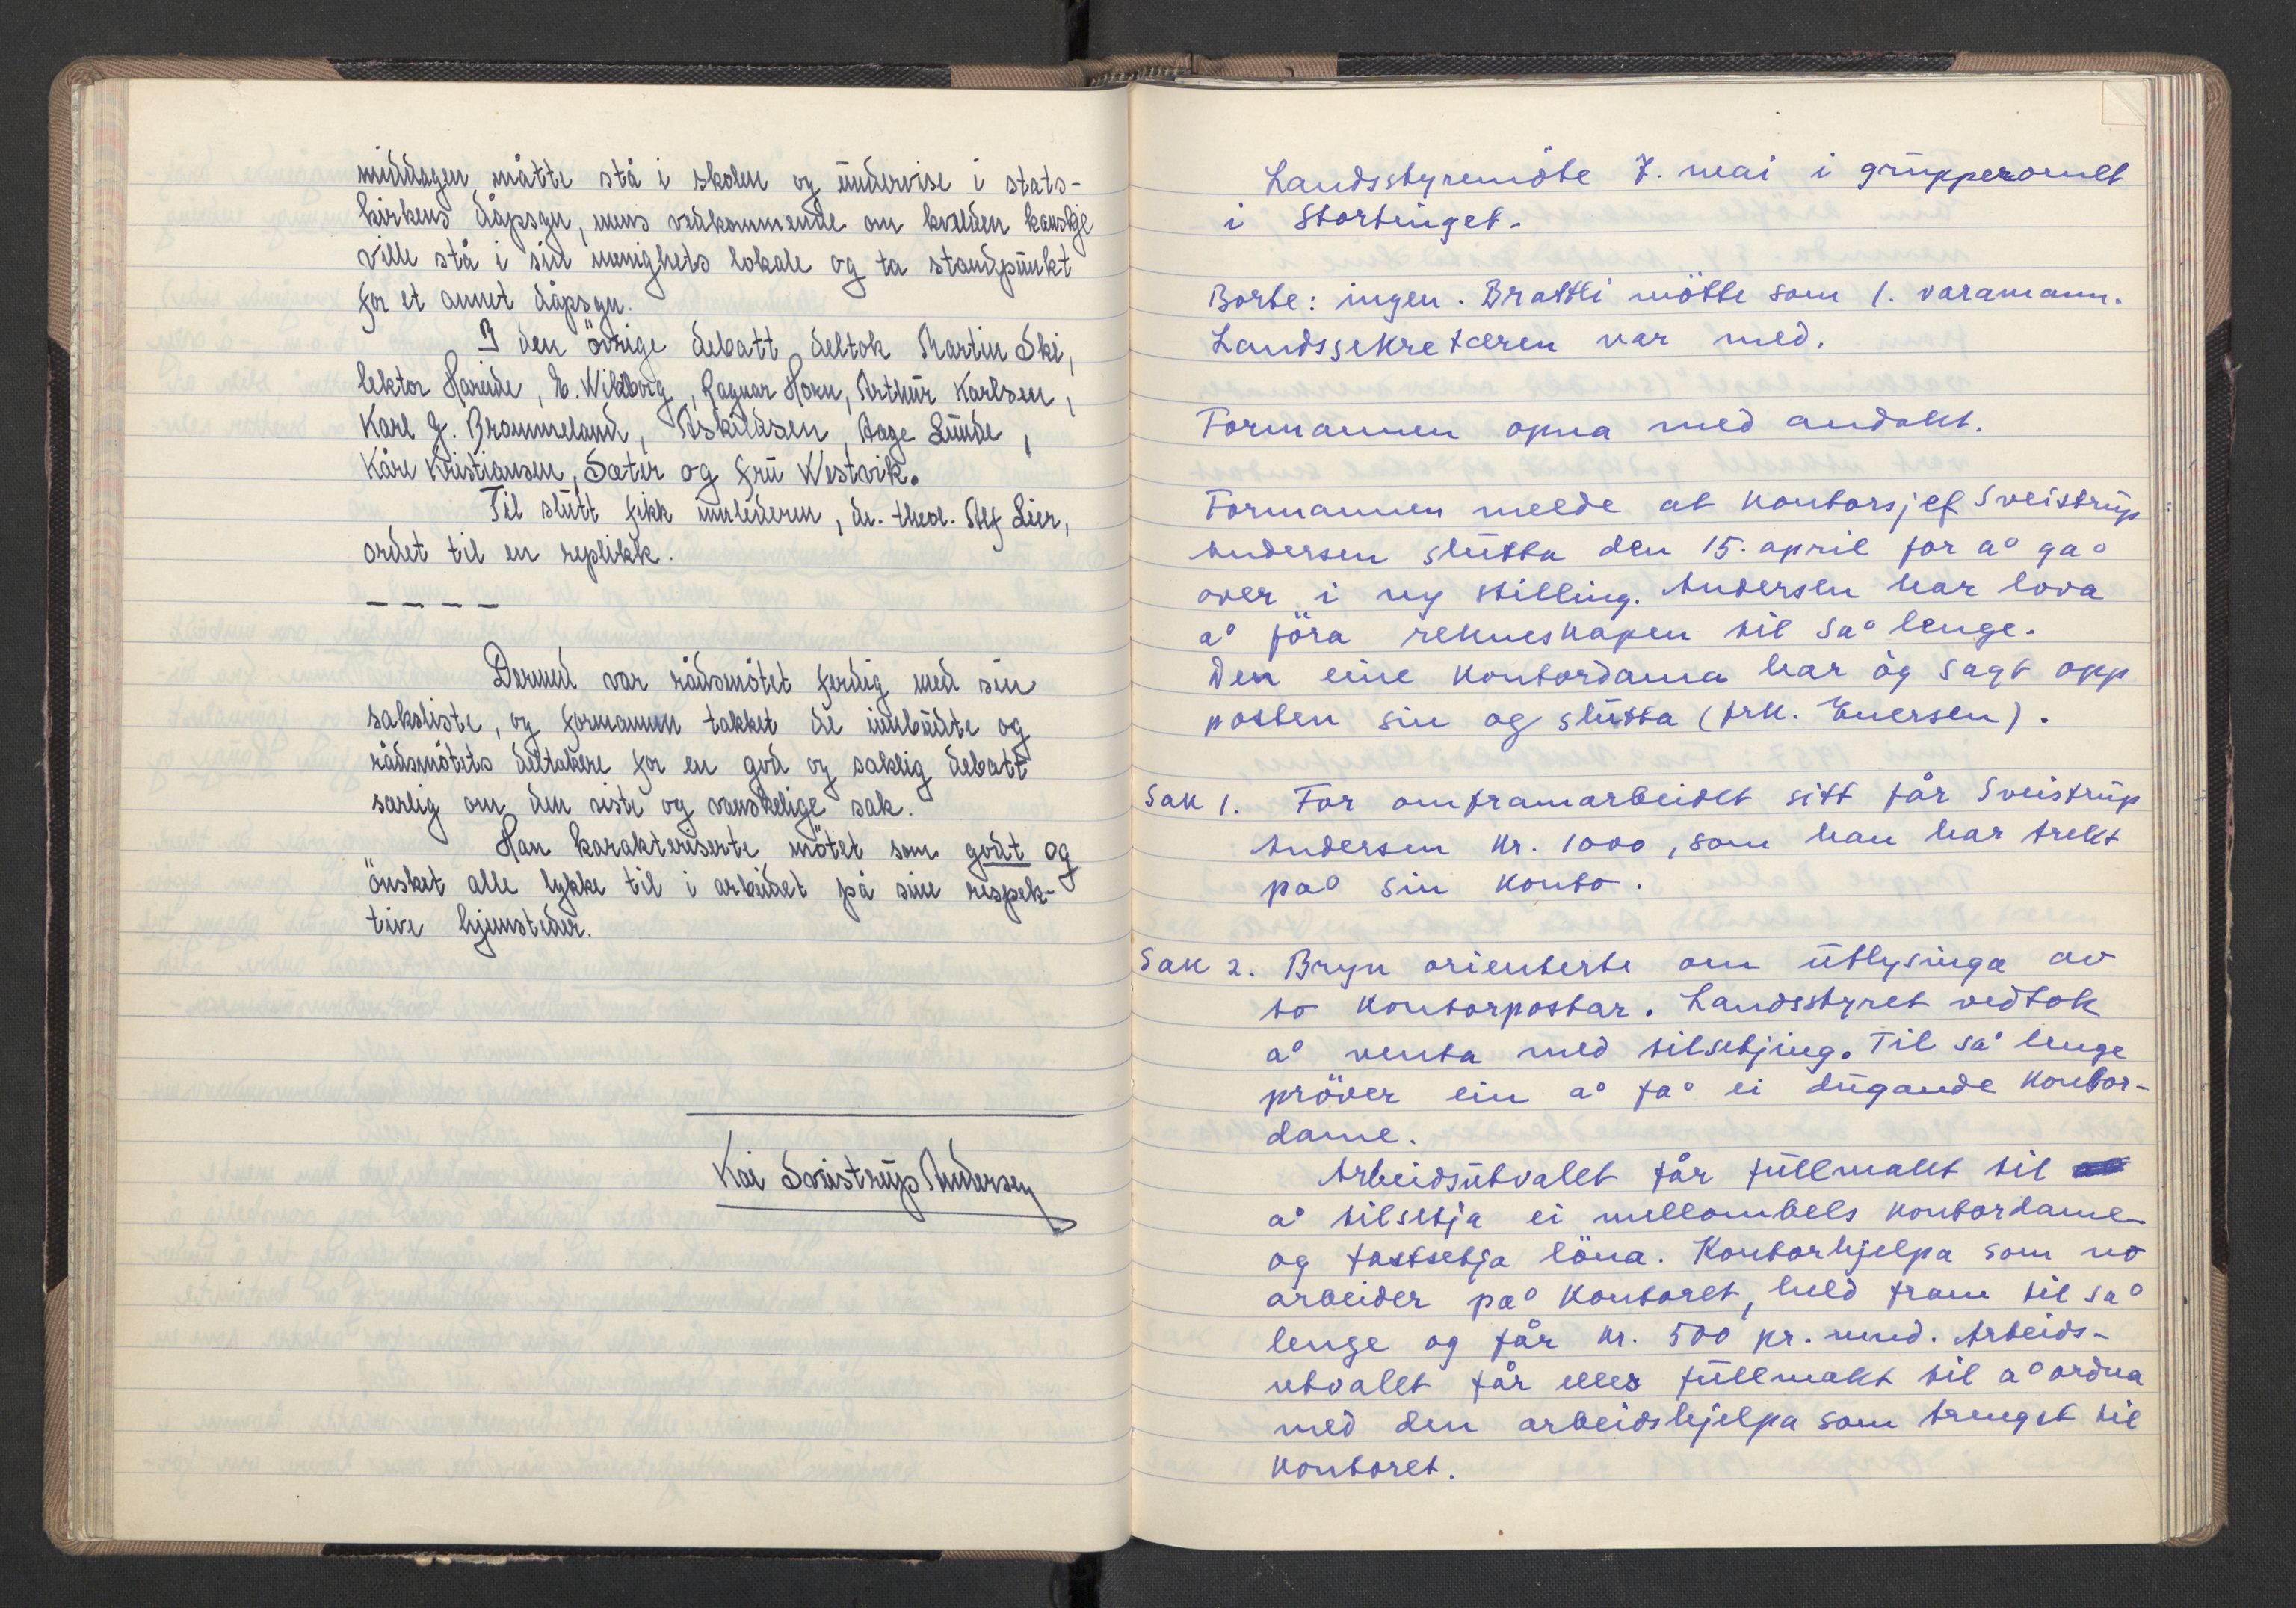 middagen måtte stå i skolen og undervise i stats-
kirkens dåpssyn, mens vedkommende om kvelden kanskje
ville stå i sin menighets lokale og ta standpunkt
for et annet dåpssyn.
I den övrige debatt deltok Martin Ski,
lektor Hareide, E. Wikborg, Ragnar Horn, Arthur Karlsen,
Karl G. Brommeland, Askildsen, Aage Lunde,
Kåre Kristiansen, Sæter og fru Westvik.
Til slutt fikk innlederen, dr. theol. Alf Lier,
ordet til en replikk.
– – – –
Dermed var rådsmötet ferdig med sin
saksliste, og formannen takket de innbudte og
rådsmötets deltakere for en god og saklig debatt
særlig om den siste og vanskelige sak.
Han karakteriserte mötet som godt og
önsket alle lykke til i arbeidet på sine respek-
tive hjemsteder.
Kai Sveistrup Andersen
Landsstyremöte 7. mai i grupperomet
i Stortinget.
Borte: ingen. Brattli mötte som 1. varamann.
Landssekretæren var med.
Formannen opna med andakt.
Formannen melde at kontorsjef Sveistrup
Andersen slutta den 15. april for å gå
over i ny stilling. Andersen har lova
å föra rekneskapen til så lenge.
Den eine kontordama har òg sagt opp
posten sin og slutta (frk. Enersen).
Sak 1. For omframarbeidet sitt får Sveistrup
Andersen kr. 1000, som han har trekt
på sin konto.
Sak 2. Bryn orienterte om utlysinga av
to kontorpostar. Landsstyret vedtok
å venta med tilsetjing. Til så lenge
pröver ein å få ei dugande kontor-
dame.
Arbeidsutvalet får fullmakt til
å tilsetja ei mellombels kontordame
og fastsetja löna. Kontorhjelpa som no
arbeider på kontoret, held fram til så
lenge og får kr. 500 pr. mnd. Arbeids-
utvalet får elles fullmakt til å ordna
med den arbeidshjelpa som trengst til
kontoret.